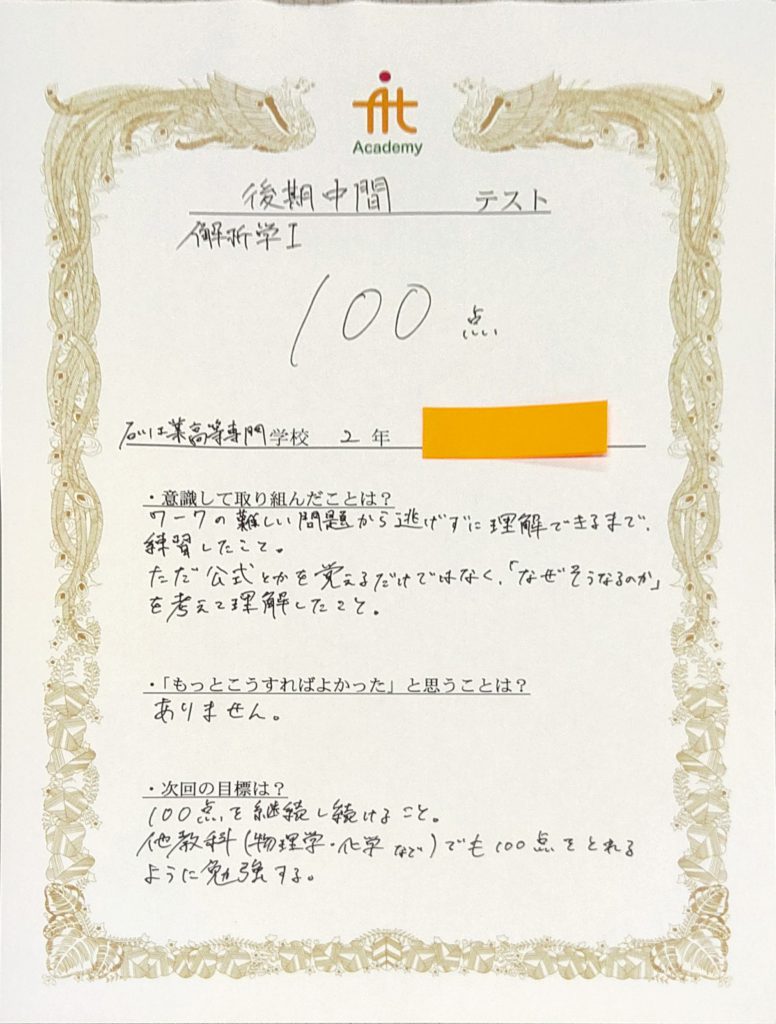 Academy
後期中間 テスト
解析学I
100 点
石川工業高等専門学校 2 年
・意識して取り組んだことは？
ワークの難しい問題から逃げずに理解できるまで、
練習したこと。
ただ公式とかを覚えるだけではなく、「なぜそうなるのか」
を考えて理解したこと。
・「もっとこうすればよかった」と思うことは？
ありません。
・次回の目標は？
100点を継続し続けること。
他教科(物理学・化学など)でも100点をとれる
ように勉強する。